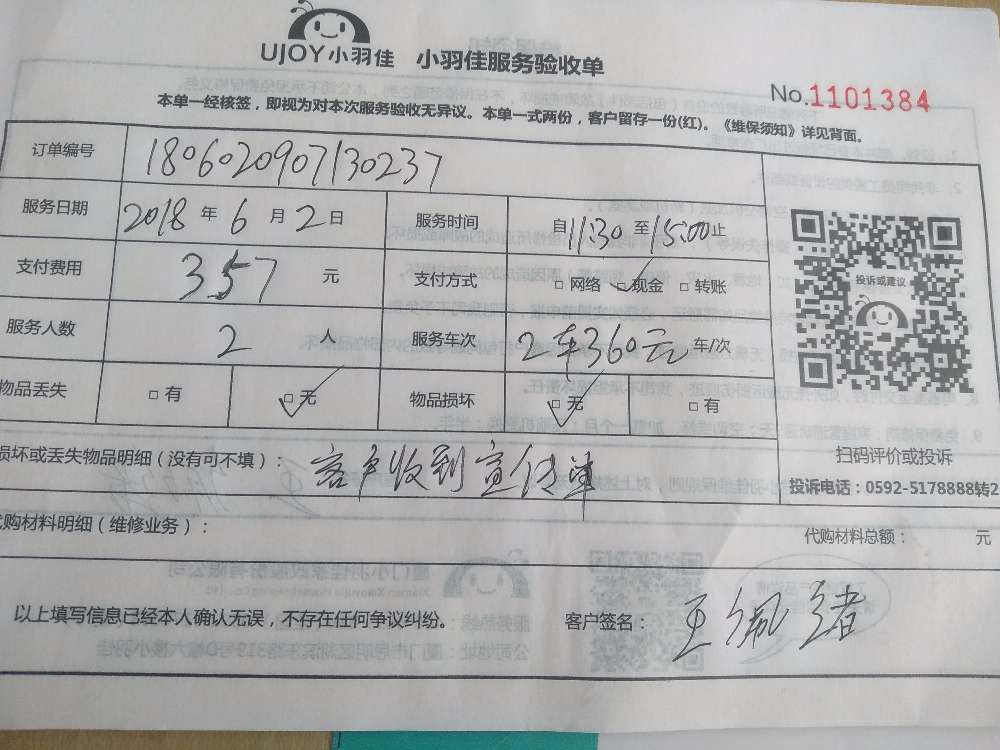 UJOY小羽佳 小羽佳服务验收单
No.1101384
本单一经核签，即视为对本次服务验收无异议。本单一式两份，客户留存一份(红)。《维保须知》详见背面。
订单编号 180602090713037
服务日期 2018 年 6 月 2 日 服务时间 自11:30 至15:00止
支付费用 357 元 支付方式 □网络 □现金 □转账
投诉或建议
服务人数 2 人 服务车次 2车360元 车/次
物品丢失 □有 □无 物品损坏 □无 □有
扫码评价或投诉
损坏或丢失物品明细（没有可不填）：客户收到宣传单
投诉电话：0592-5178888转2
代购材料明细（维修业务）： 代购材料总额： 元
以上填写信息已经本人确认无误，不存在任何争议纠纷。 客户签名：王佩